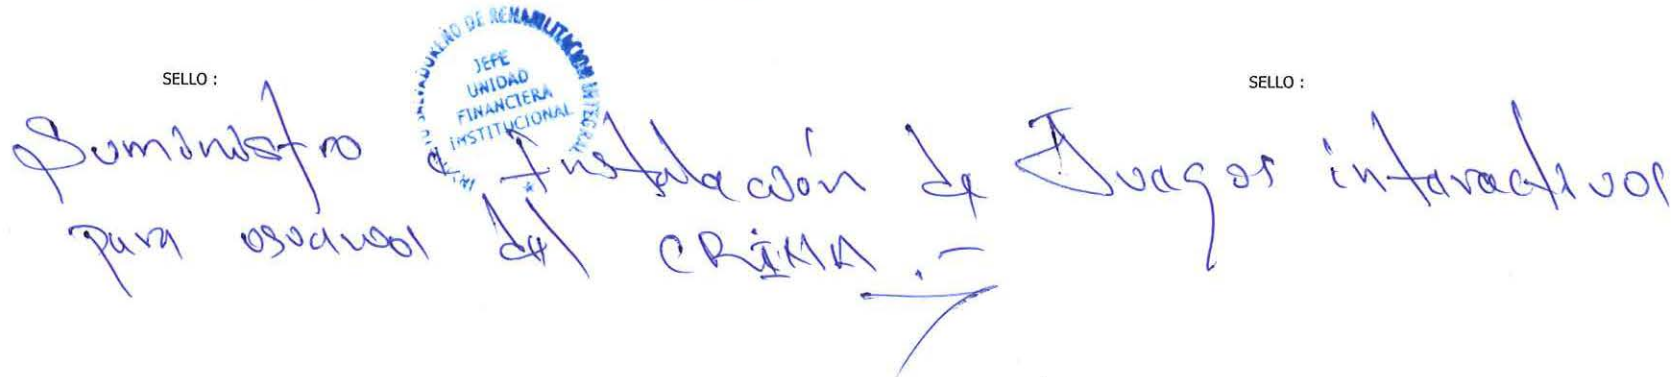 SELLO :
SELLO :
INSTITUTO SALVADOREÑO DE REHABILITACION INTEGRAL
JEFE
UNIDAD
FINANCIERA
INSTITUCIONAL
Suministro e Instalación de Juegos interactivos
para usuarios del CRINA .-